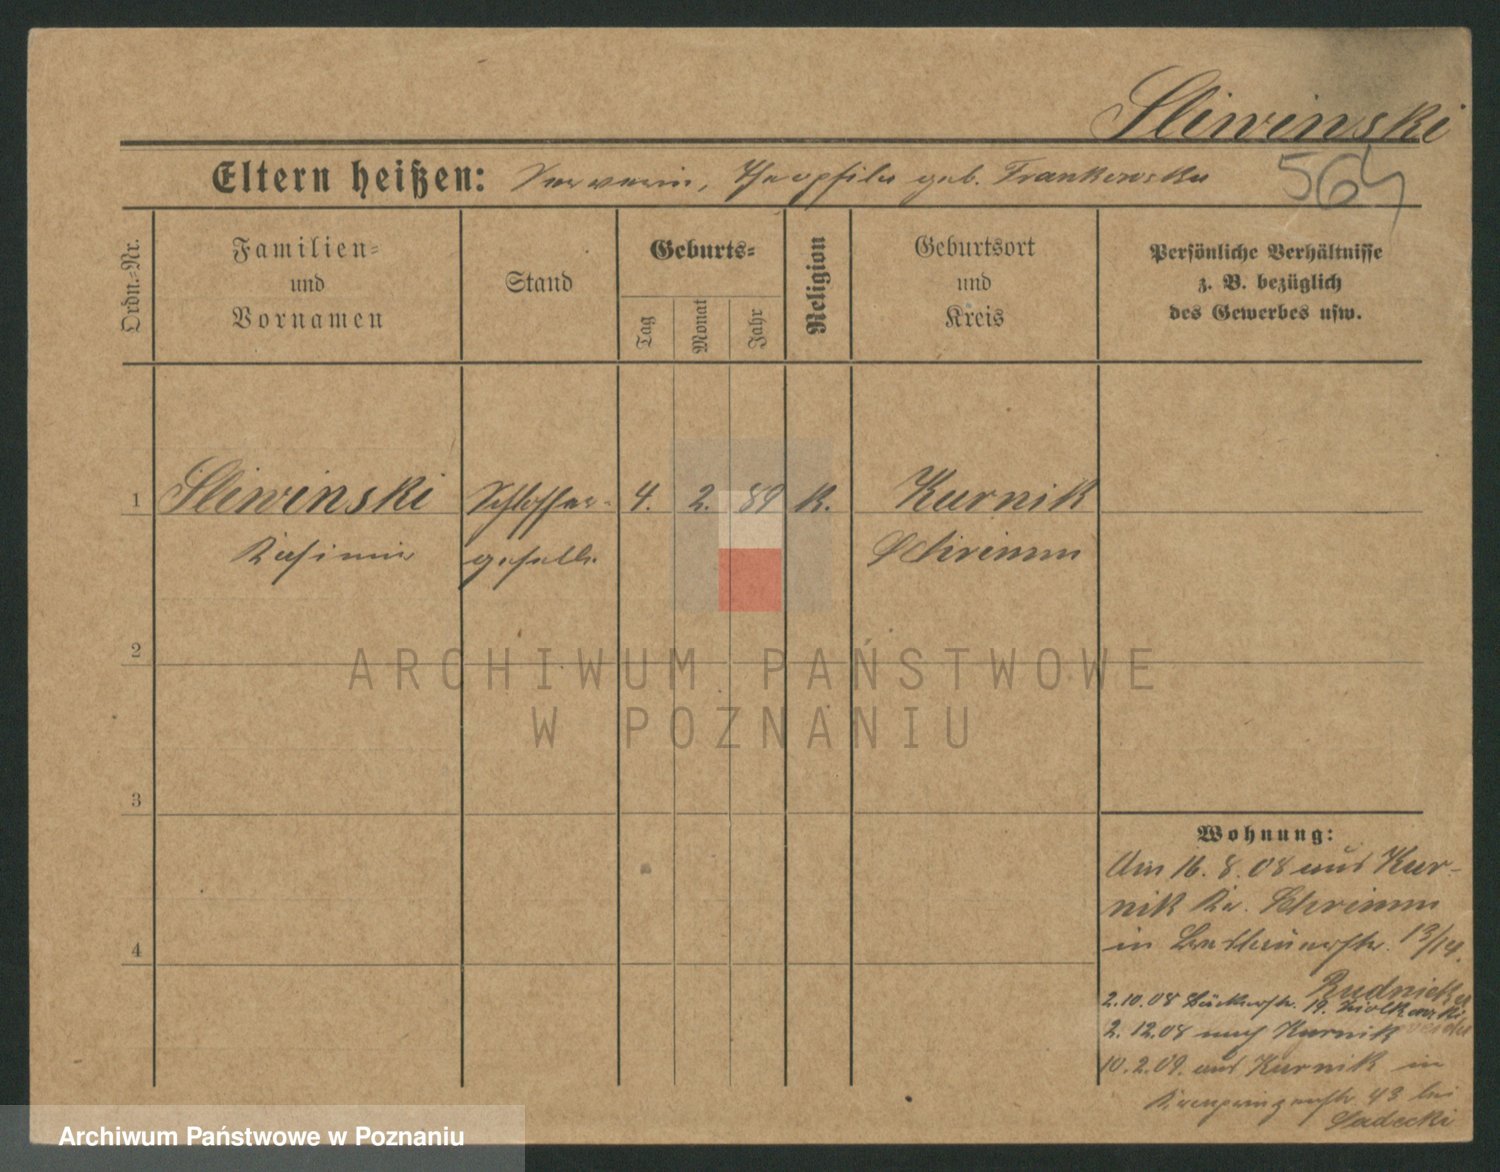 Sliwinski
Eltern heißen: Severin, Theophila geb. Frankowska
564
Ordn.-Nr.
Familien-
und
Vornamen
Stand
Geburts-
Tag
Monat
Jahr
Religion
Geburtsort
und
Kreis
Persönliche Verhältnisse
z. B. bezüglich
des Gewerbes usw.
1 Sliwinski Schlosser- 4. 2. 89 K. Kurnik
Kasimir geselle Schrimm
2
ARCHIWUM PAŃSTWOWE
W POZNANIU
3
Wohnung:
Am 16. 8. 08 aus Kur-
nik Kr. Schrimm
4
in 13/14.
Rudnicki
2.10.08 Bäckerstr. 19. Ziolkowski
2. 12.08 nach Kurnik
10. 2. 09. aus Kurnik in
Kronprinzenstr. 43 bei
Sadecki
Archiwum Państwowe w Poznaniu